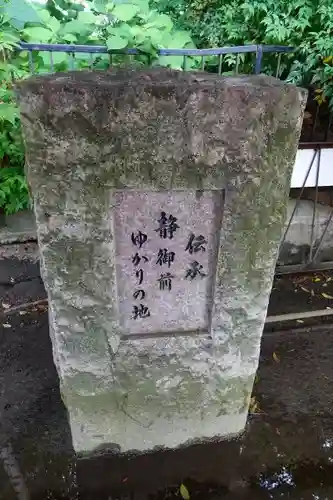 伝承
静御前
ゆかりの地